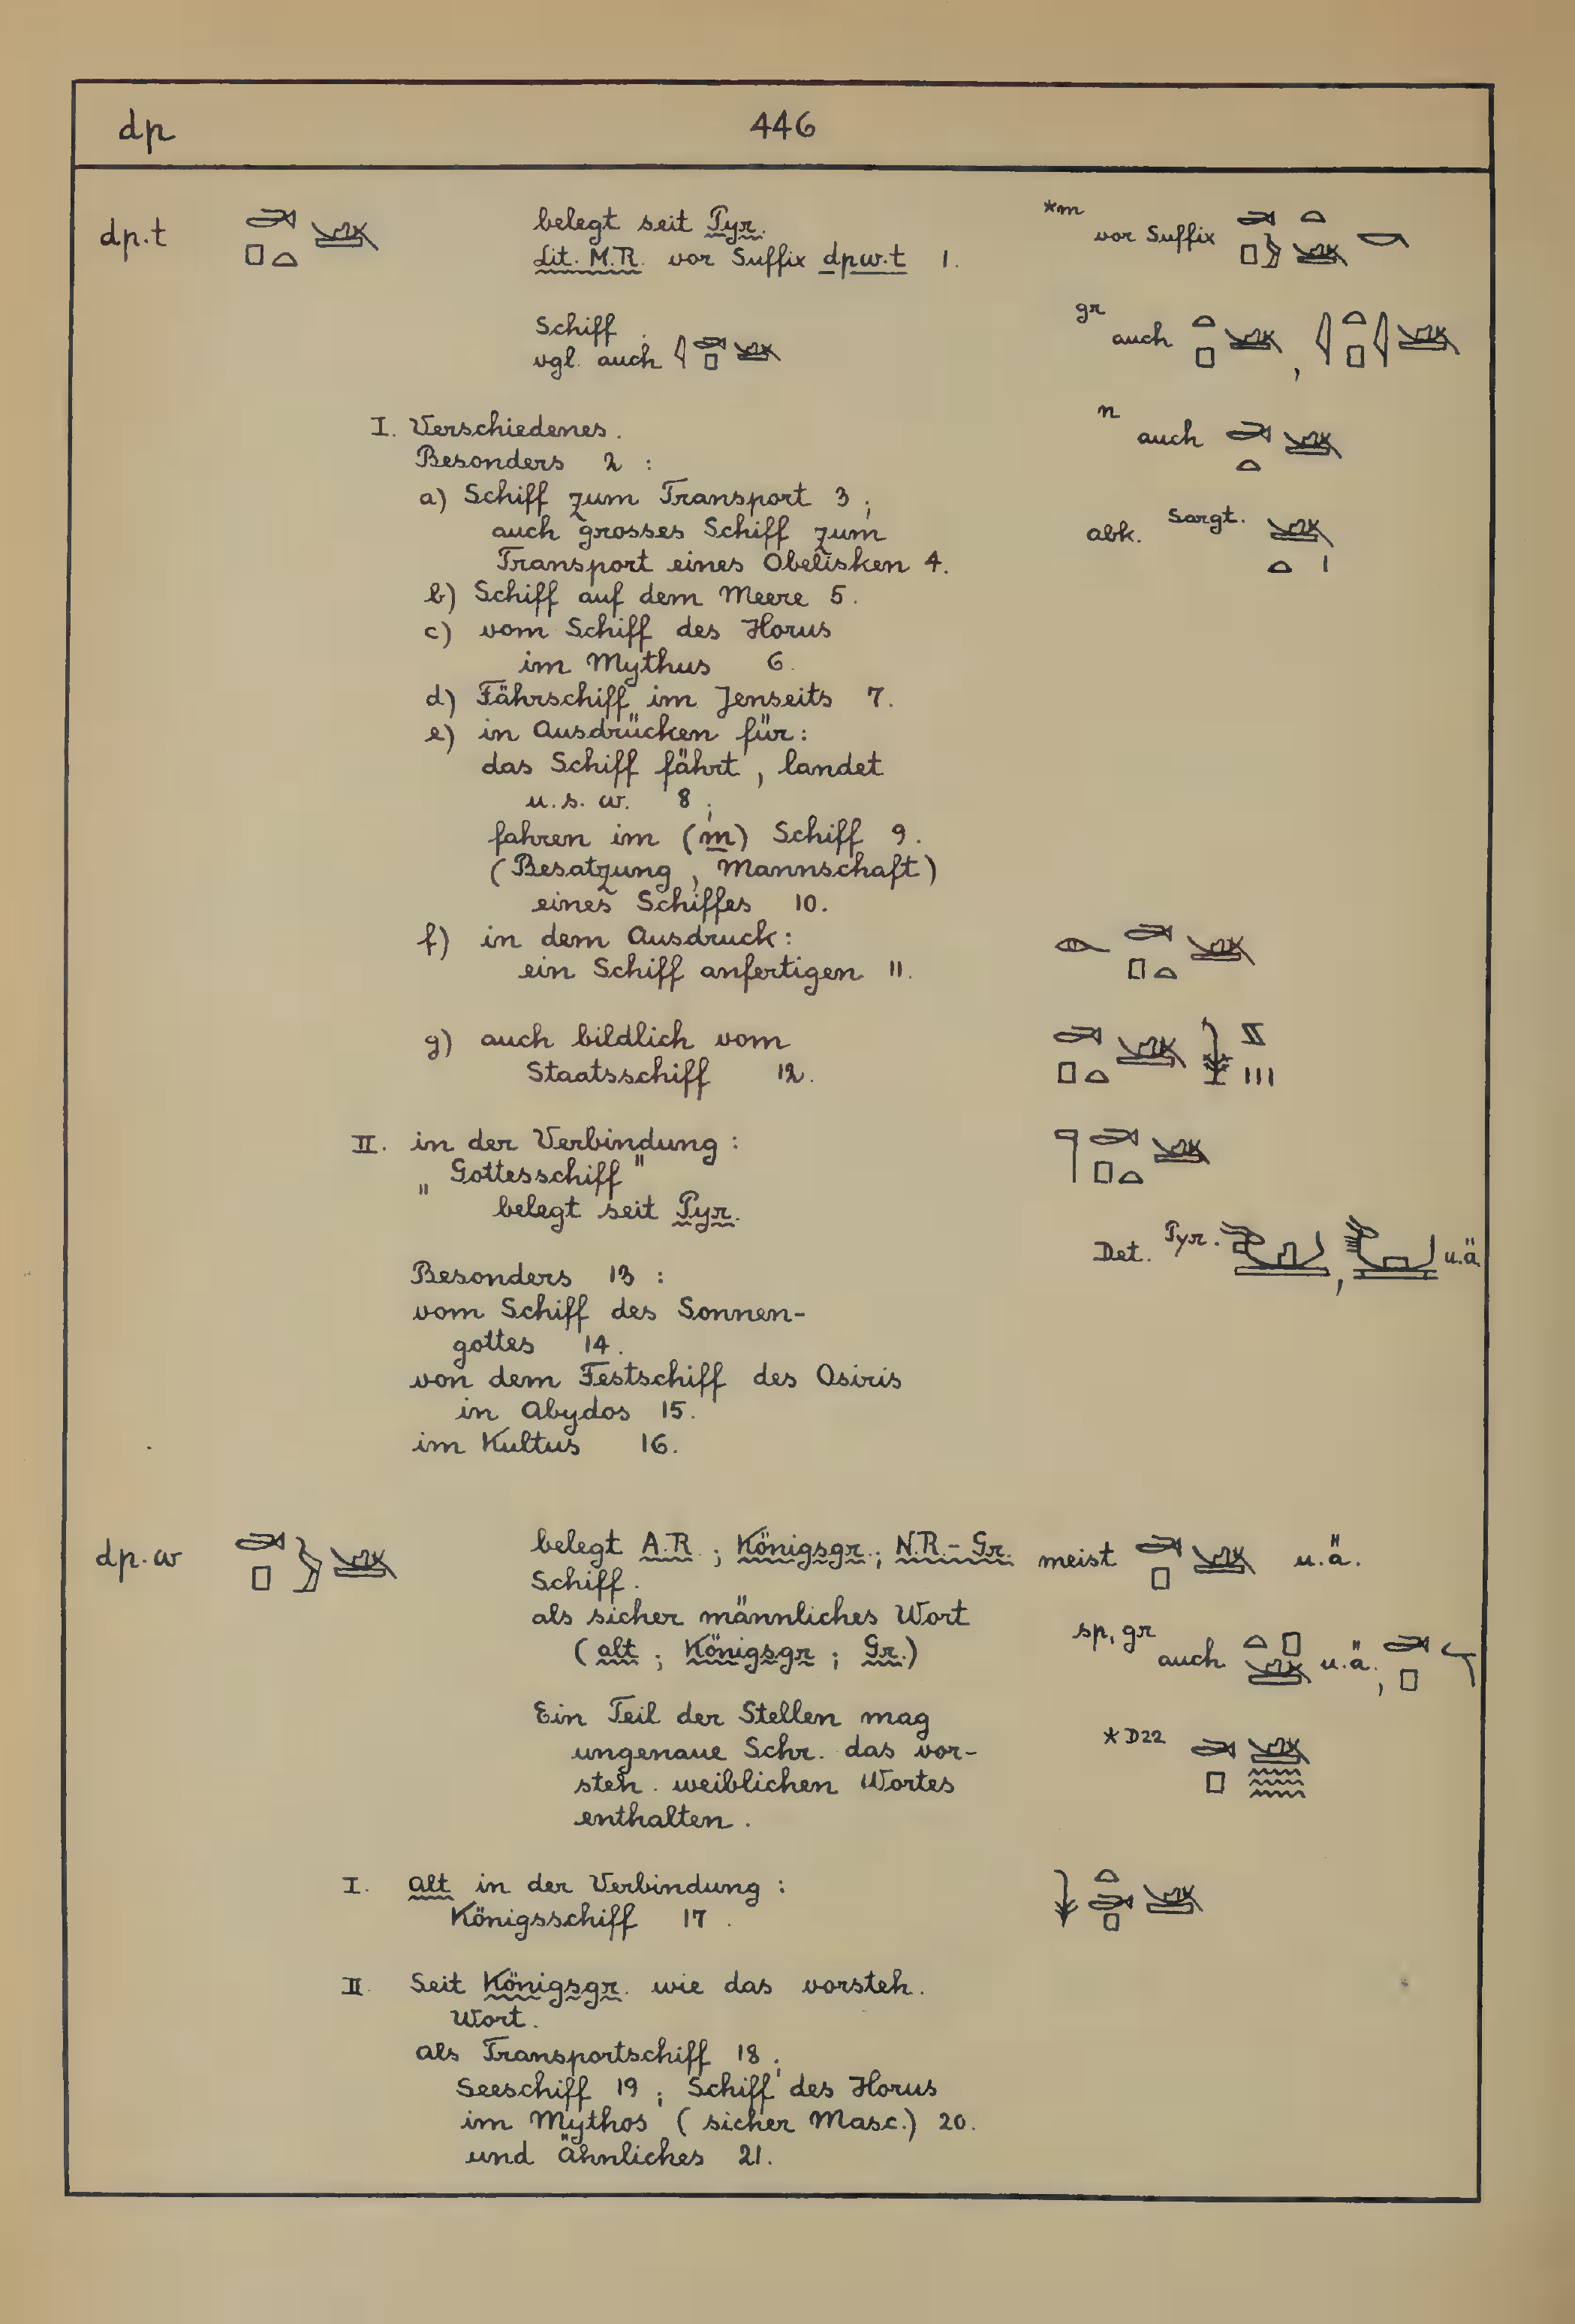 dp 446
dp.t belegt seit Pyr. *m
Lit. M.R. vor Suffix dpw.t 1. vor Suffix
Schiff. gr auch
vgl. auch
I. Verschiedenes. n auch
Besonders 2 :
a) Schiff zum Transport 3 ;
auch grosses Schiff zum abk. Sargt.
Transport eines Obelisken 4.
b) Schiff auf dem Meere 5.
c) vom Schiff des Horus
im Mythus 6.
d) Fährschiff im Jenseits 7.
e) in Ausdrücken für:
das Schiff fährt, landet
u.s.w. 8 ;
fahren im (m) Schiff 9.
(Besatzung, Mannschaft)
eines Schiffes 10.
f) in dem Ausdruck:
ein Schiff anfertigen 11.
g) auch bildlich vom
Staatsschiff 12.
II. in der Verbindung :
„Gottesschiff"
belegt seit Pyr.
Det. Pyr. , u.ä.
Besonders 13 :
vom Schiff des Sonnen-
gottes 14.
von dem Festschiff des Osiris
in Abydos 15.
im Kultus 16.
dp.w belegt A.R. ; Königsgr. ; N.R.-Gr. meist u.ä.
Schiff.
als sicher männliches Wort sp, gr
(alt ; Königsgr ; Gr.) auch u.ä.,
Ein Teil der Stellen mag *D22
ungenaue Schr. das vor-
steh. weiblichen Wortes
enthalten.
I. alt in der Verbindung :
Königsschiff 17.
II. Seit Königsgr. wie das vorsteh.
Wort.
als Transportschiff 18 ;
Seeschiff 19 ; Schiff des Horus
im Mythos (sicher Masc.) 20.
und ähnliches 21.